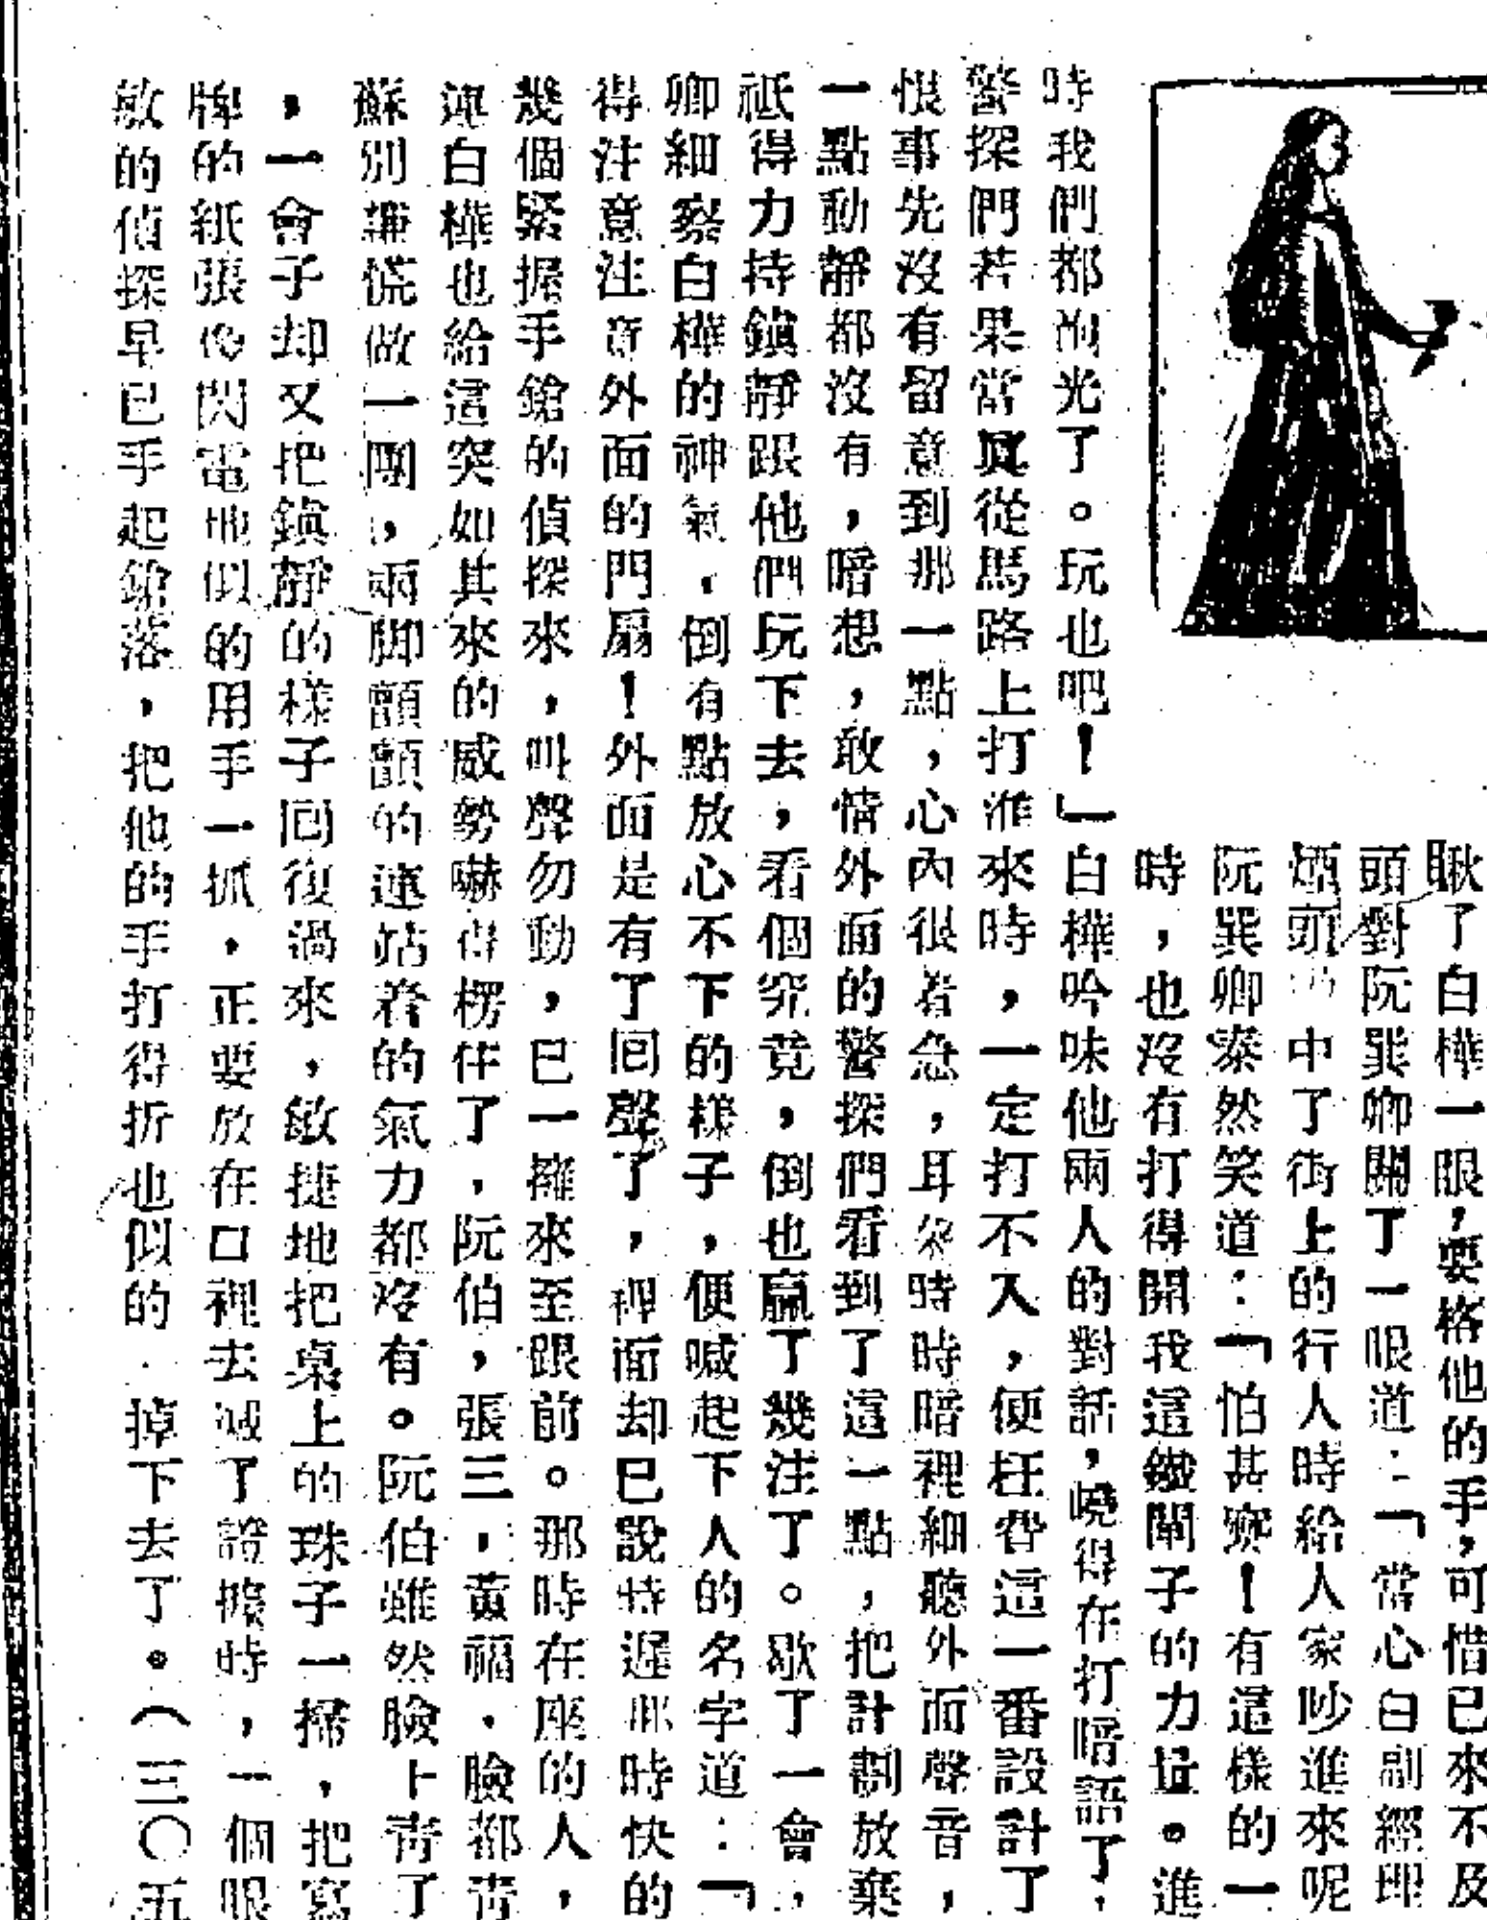 瞅了白樺一眼，要格他的手，可惜已來不及
頭對阮巽卿關了一眼道：「當心白副經理
煙頭 中了街上的行人時給人家吵進來呢
阮巽卿泰然笑道：「怕甚麽！有這樣的一
時，也沒有打得開我這鐵閘子的力量。進
時我們都 光了。玩也吧！」白樺吟味他兩人的對話，嘵得在打暗語了，
警探們若果當眞從馬路上打進來時，一定打不入，便枉費這一番設計了
恨事先沒有留意到那一點，心內很着急，耳 時時暗裡細聽外面聲音，
一點動靜都沒有，暗想，敢情外面的警探們看到了這一點，把計劃放棄
祗得力持鎮靜跟他們玩下去，看個究竟，倒也贏了幾注了。歇了一會，
卿細察白樺的神氣，倒有點放心不下的樣子，便喊起下人的名字道：「
得注意注意外面的門扇！外面是有了囘聲了，裡面却已說時遲那時快的
幾個緊握手鎗的偵探來，叫聲勿動，已一擁來至跟前。那時在座的人，
連白樺也給這突如其來的威勢嚇得楞住了，阮伯，張三，黃福，臉都青
蘇別謙慌做一團，兩脚顫顫的連站着的氣力都沒有。阮伯雖然臉上青了
，一會子却又把鎮靜的樣子囘復過來，敏捷地把桌上的珠子一掃，把寫
牌的紙張像閃電地似的用手一抓，正要放在口裡去滅了證據時，一個眼
敏的偵探早已手起鎗落，把他的手打得折也似的，掉下去了。（三〇五